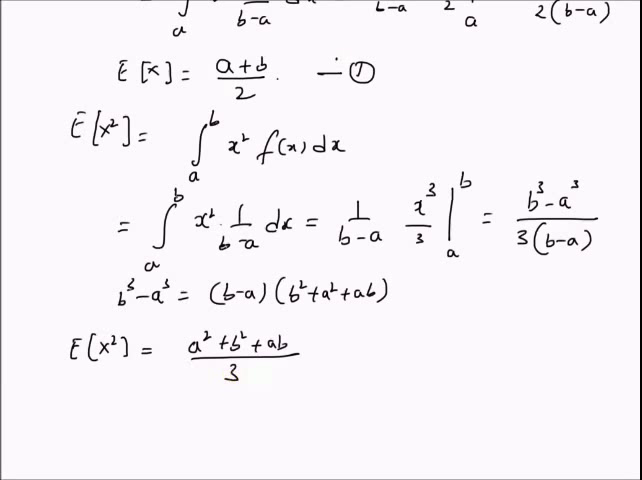 ∫ₐ b-a b-a 2 a 2(b-a)
E[x] = (a+b)/2 . — ①
E[x²] = ∫ₐᵇ x² f(x) dx
= ∫ₐᵇ x² · 1/(b-a) dx = 1/(b-a) x³/3 |ₐᵇ = (b³-a³)/(3(b-a))
b³-a³ = (b-a)(b²+a²+ab)
E[x²] = (a²+b²+ab)/3